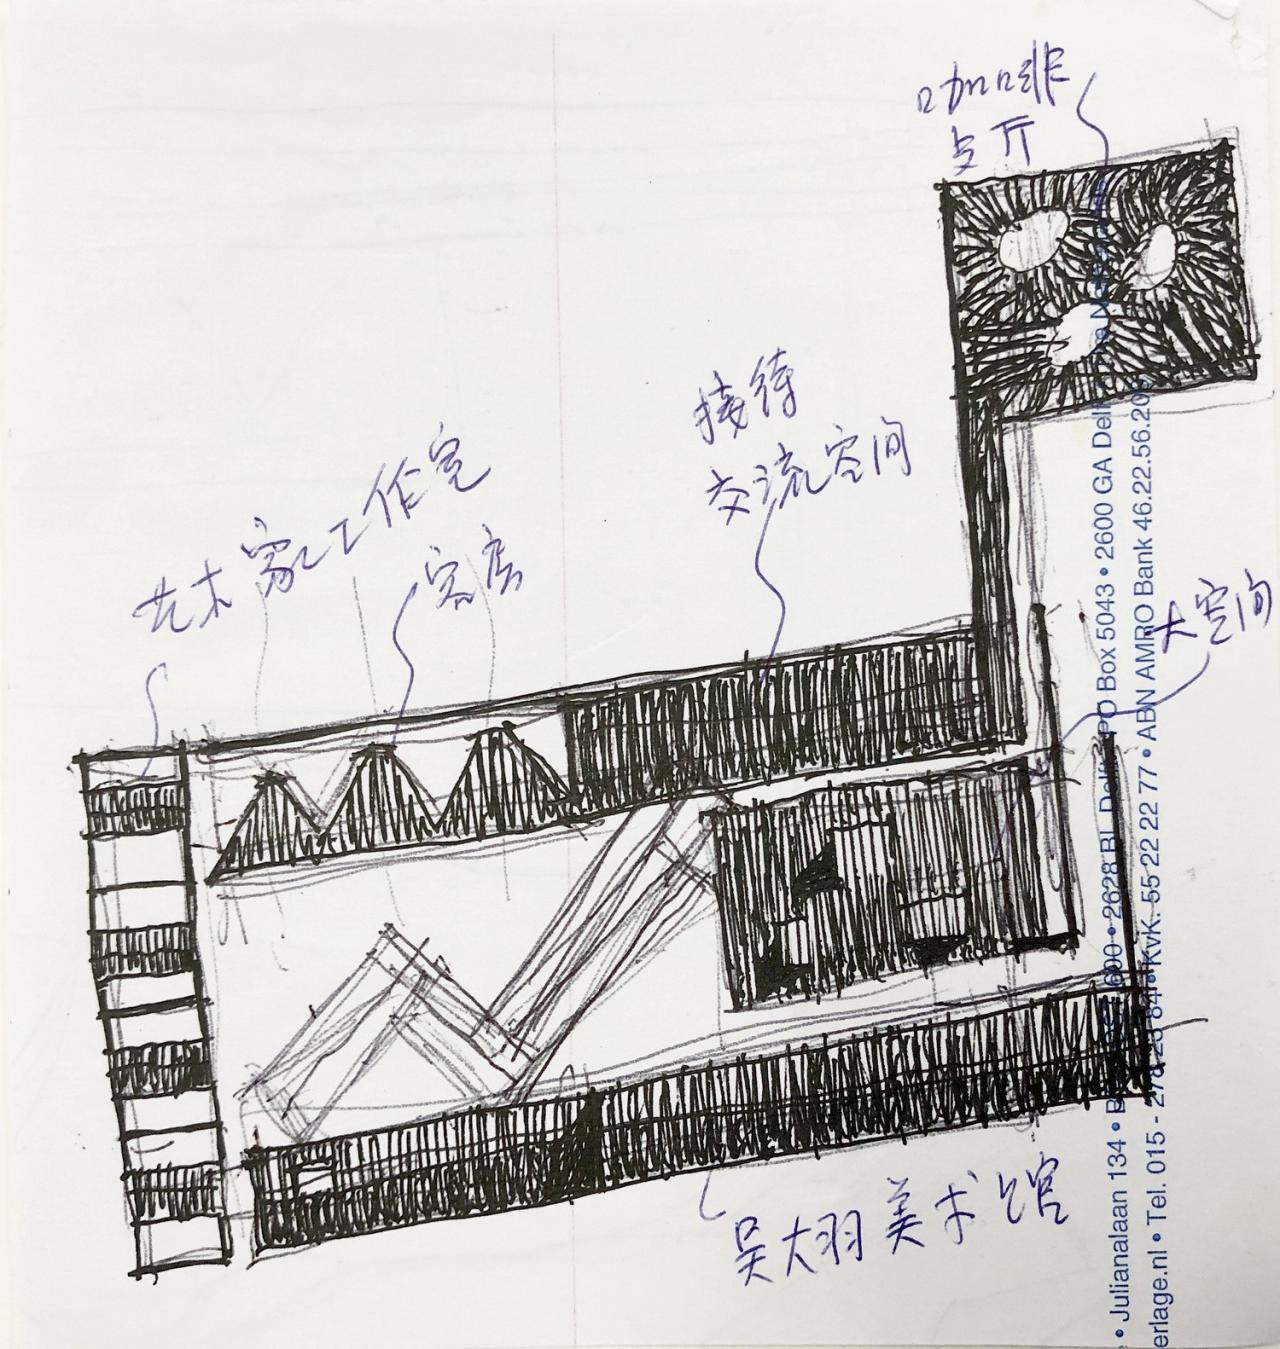 咖啡
餐厅
接待
交流空间
艺术家工作室
客房
大空间
吴大羽美术馆
• Julianalaan 134 • 2628 BL Delft • PO Box 5043 • 2600 GA Delft
erlage.nl • Tel. 015 - 278 28 84 • KvK. 55 22 22 77 • ABN AMRO Bank 46.22.56.20